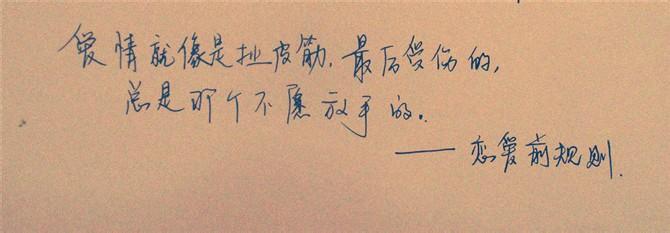 爱情就像是扯皮筋，最后受伤的，
总是那个不愿放手的。
——恋爱前规则.